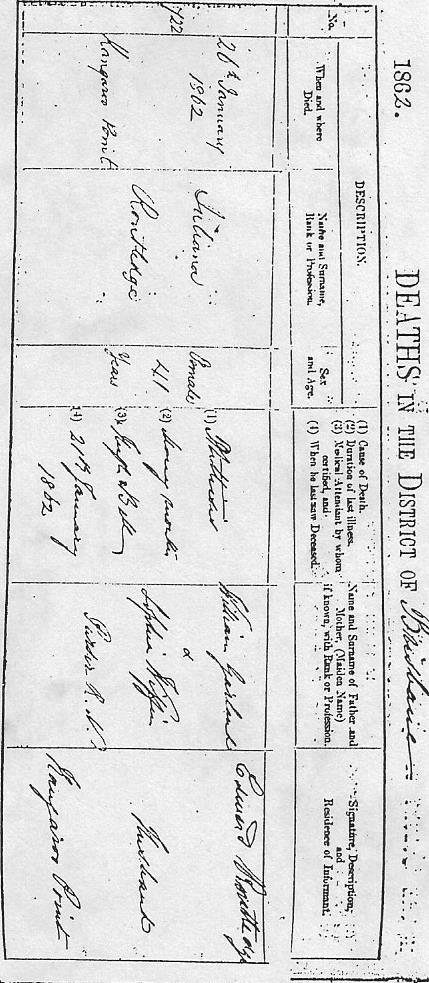 1862.
DEATHS IN THE DISTRICT OF Brisbane
DESCRIPTION.
No.
When and where
Died.
Name and Surname,
Rank or Profession.
Sex
and Age.
(1) Cause of Death.
(2) Duration of last illness.
(3) Medical Attendant by whom
certified, and
(4) When he last saw Deceased.
Name and Surname of Father and
Mother, (Maiden Name)
if known, with Rank or Profession
Signature, Description,
and
Residence of Informant.
722
26th January
1862
Kangaroo Point
Juliana
Routledge
Female
41
Years
(1) Phthisis
(2) Many months
(3) Hugh Bell
(4) 21st January
1862
William Garland
&
Sophia
Purser R. N.
Edward Routledge
Husband
Kangaroo Point